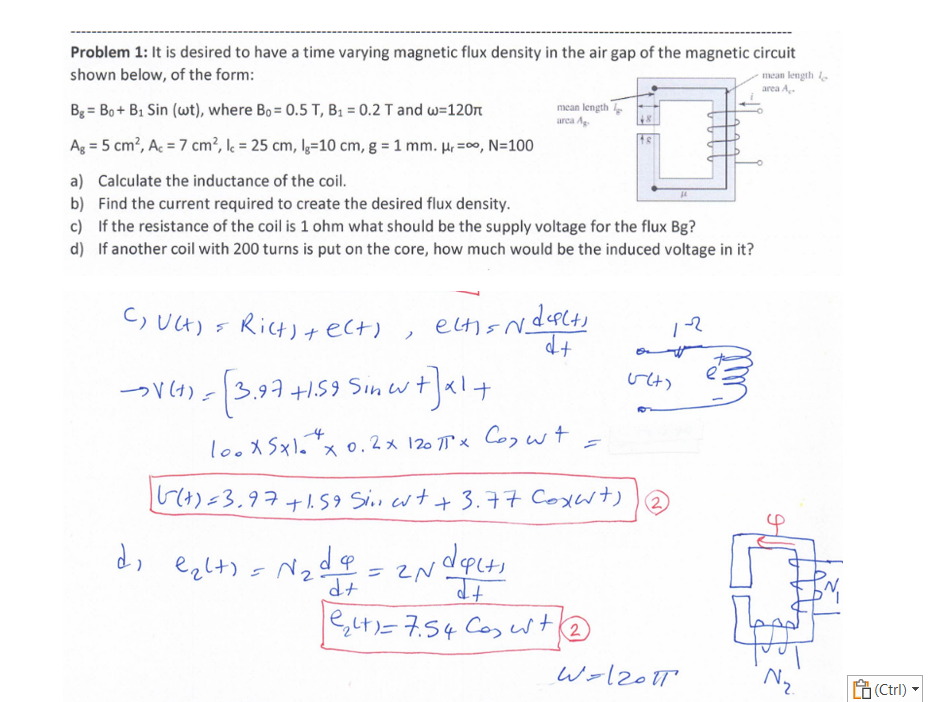 Problem 1: It is desired to have a time varying magnetic flux density in the air gap of the magnetic circuit
shown below, of the form:
mean length lc
area Ac
Bg = B0 + B1 Sin (ωt), where B0 = 0.5 T, B1 = 0.2 T and ω=120π
mean length lg
area Ag
i
g
g
μ
Ag = 5 cm², Ac = 7 cm², lc = 25 cm, lg=10 cm, g = 1 mm. μr =∞, N=100
a) Calculate the inductance of the coil.
b) Find the current required to create the desired flux density.
c) If the resistance of the coil is 1 ohm what should be the supply voltage for the flux Bg?
d) If another coil with 200 turns is put on the core, how much would be the induced voltage in it?
c) V(t) = Ri(t) + e(t) , e(t) = N dφ(t)/dt
1 Ω
→ V(t) = [3.97 + 1.59 Sin ωt] x 1 +
v(t) e + -
100 x 5x10⁻⁴ x 0.2 x 120π x Cos ωt =
v(t) = 3.97 + 1.59 Sin ωt + 3.77 Cos(ωt) 2
φ
d) e2(t) = N2 dφ/dt = 2N dφ(t)/dt
N1
e2(t) = 7.54 Cos ωt 2
ω = 120π
N2
(Ctrl)